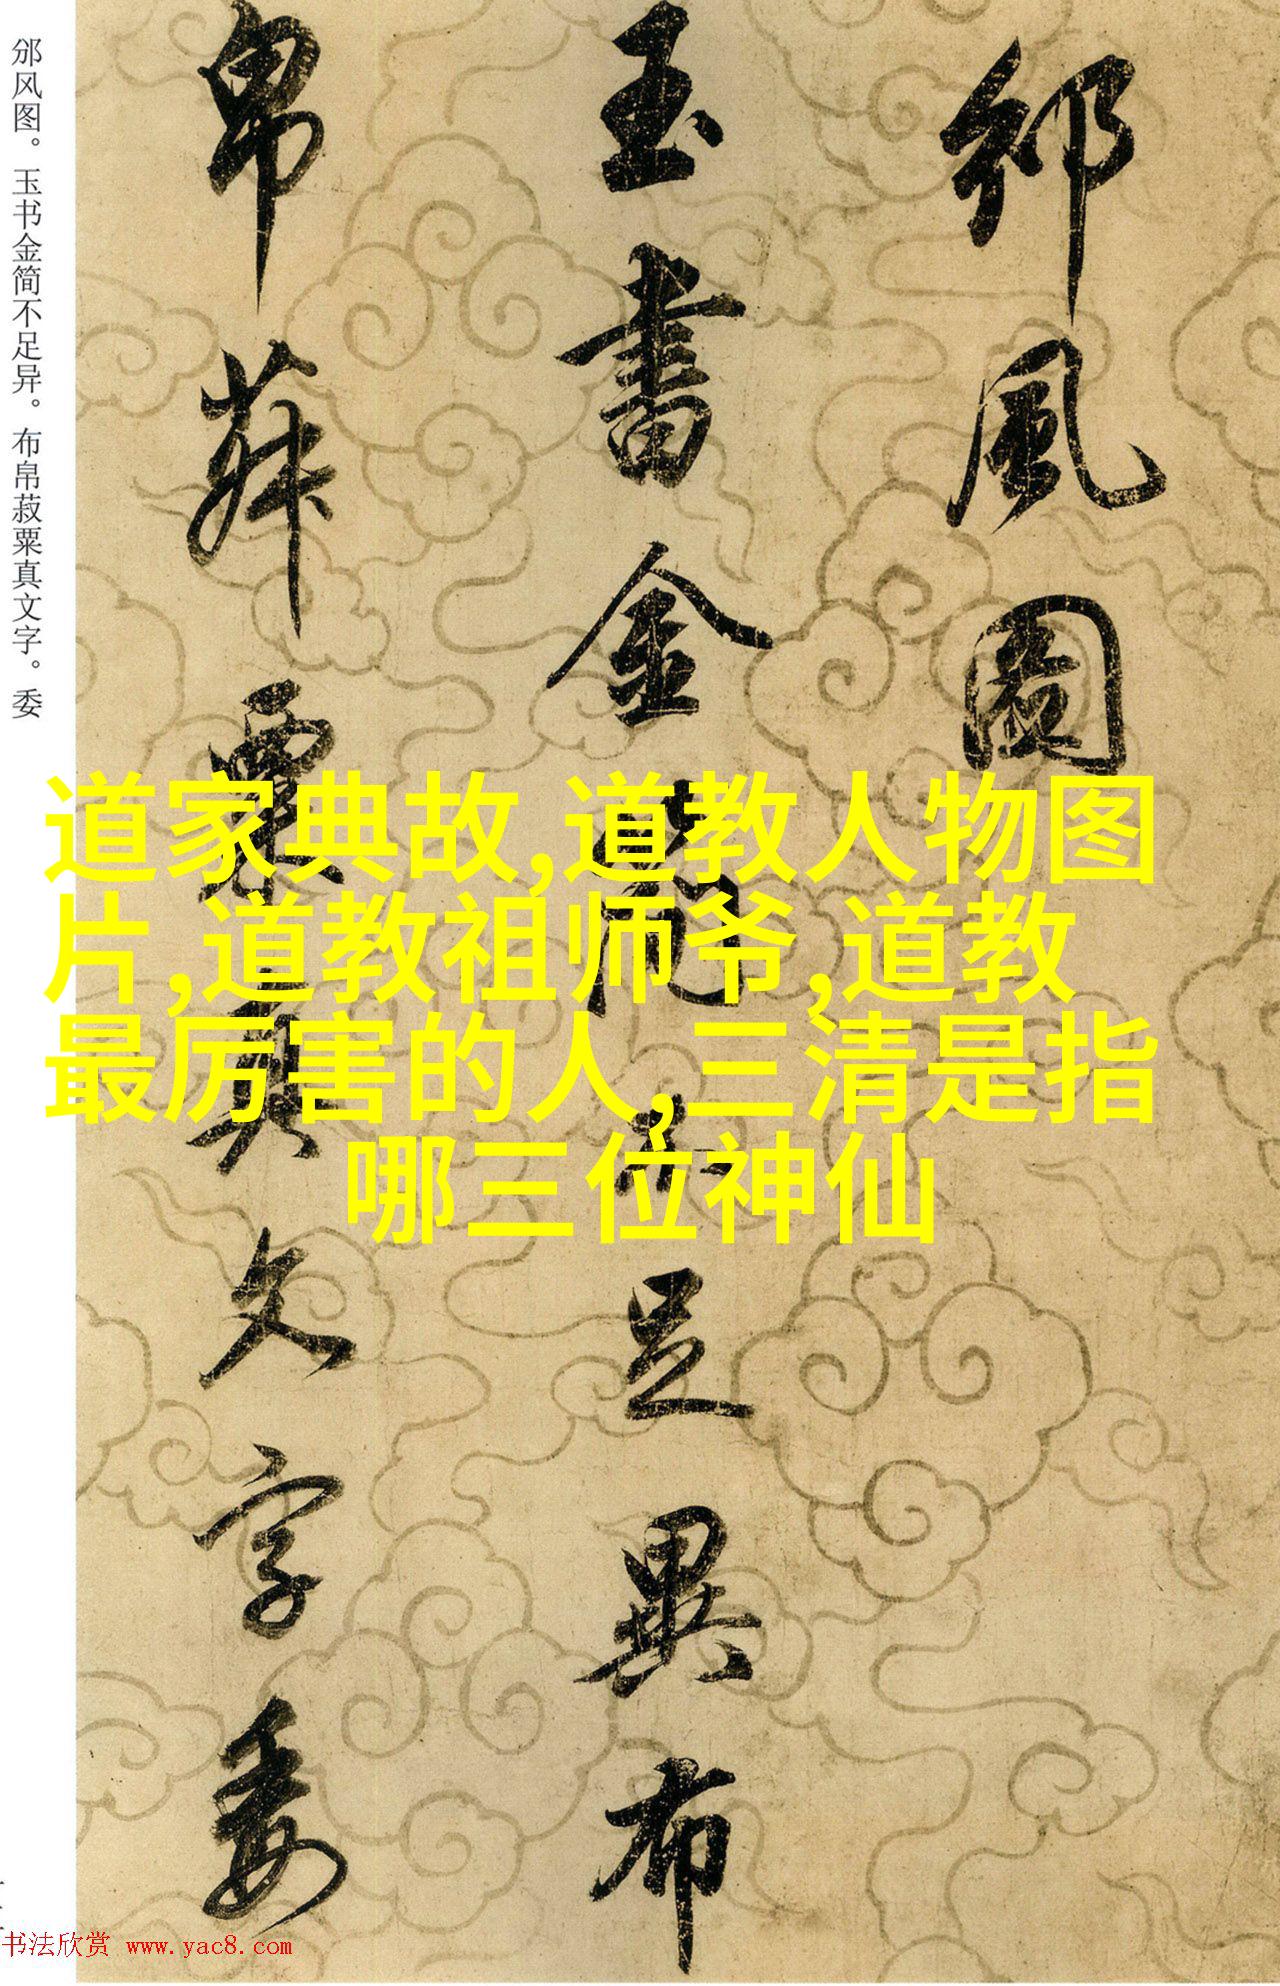 邠风图。玉书金简不足异。布帛菽粟真文字。委
邠風圖
玉書金簡不足異布
帛菽粟真文字委
道家典故,道教人物图
片,道教祖师爷,道教
最厉害的人,三清是指
哪三位神仙
书法欣赏 www.yac8.com